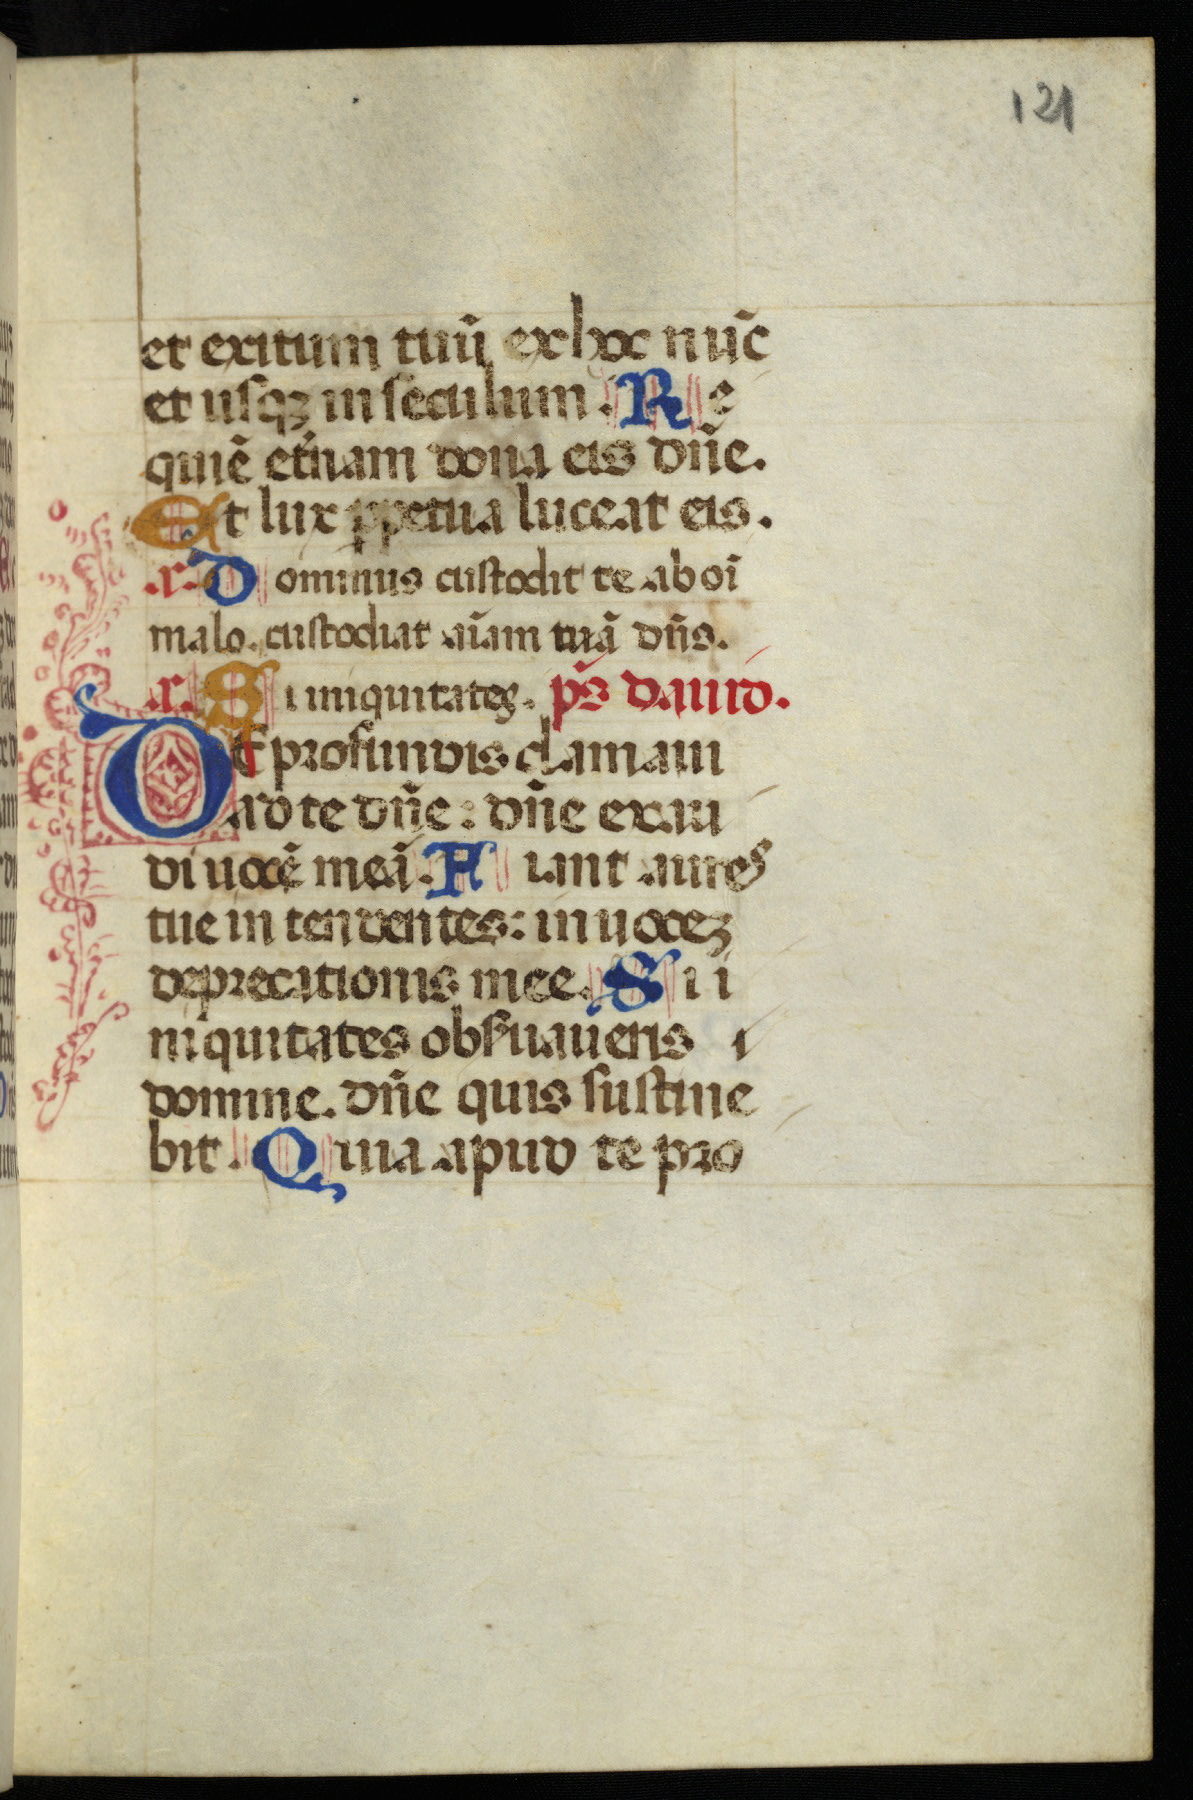 121
et exitum tuū ex hoc nūc
et usqꝫ in seculum. Re
quiē et̃nam dona eis dñe.
Et lux ꝑpetua luceat eis.
.r. Dominus custodit te ab oī
malo. custodiat aīam tuā dñs.
.r. Si iniquitates. ps̃ dauid.
De profundis clamaui
ad te dñe: dñe exau
di uocē meā. Fiant aures
tue in tendentes: in uoceꝫ
deprecationis mee. Si i
niquitates obs̃uaueris
domine. dñe quis sustine
bit. Quia apud te pro